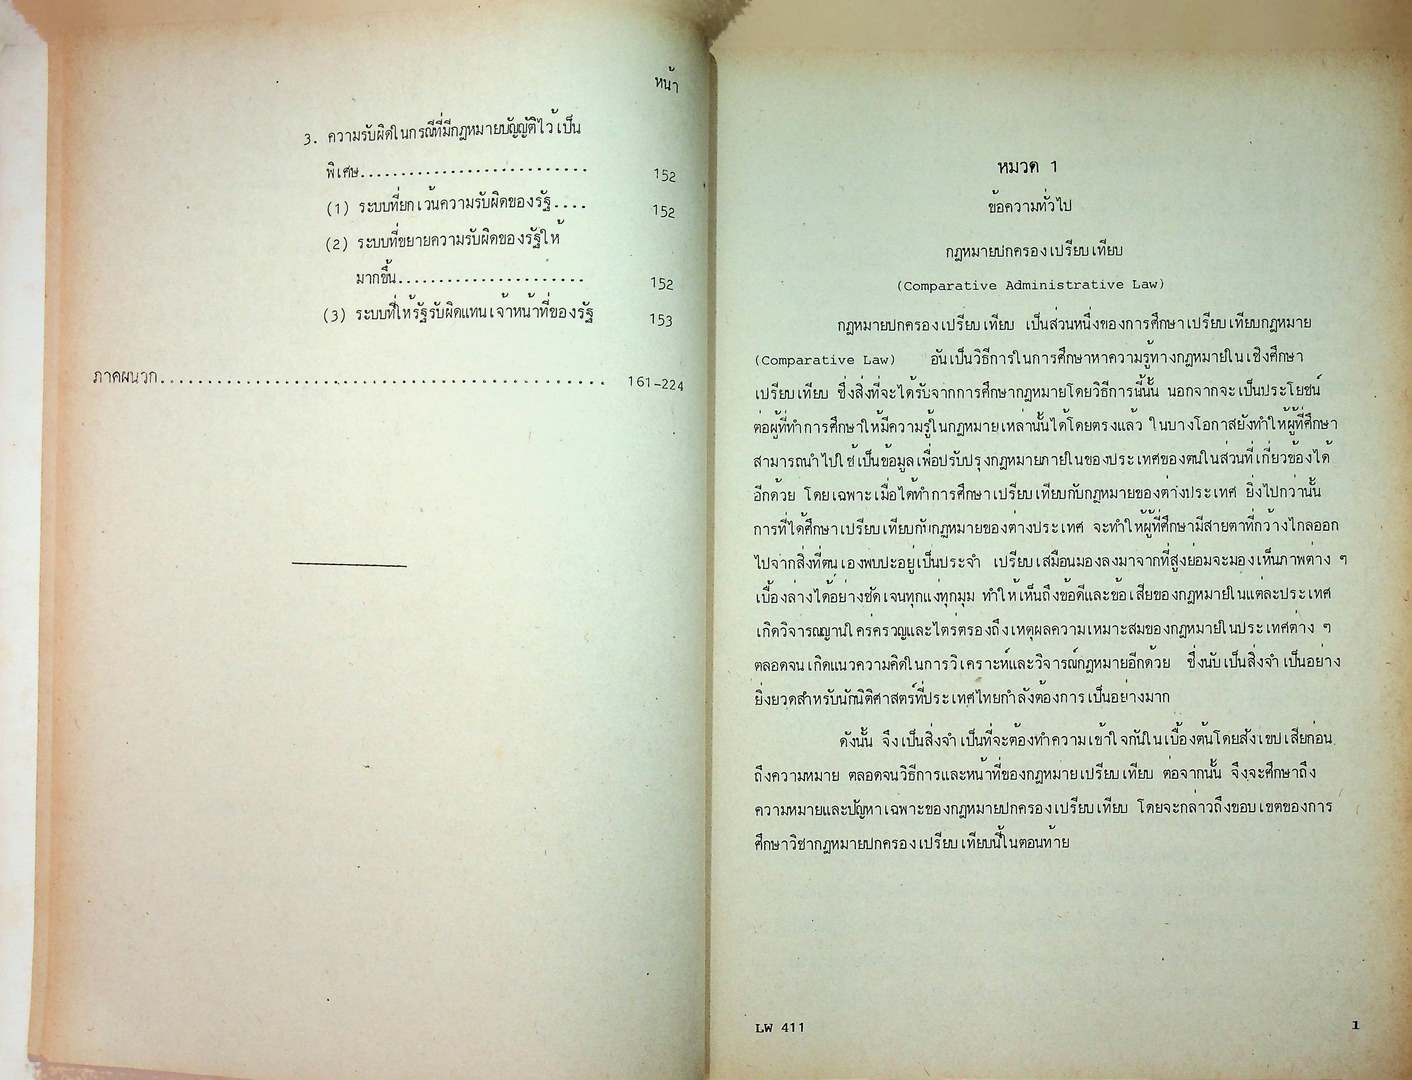 หน้า
3. ความรับผิดในกรณีที่มีกฎหมายบัญญัติไว้เป็น
พิเศษ............................ 152
(1) ระบบที่ยกเว้นความรับผิดของรัฐ.... 152
(2) ระบบที่ขยายความรับผิดของรัฐให้
มากขึ้น....................... 152
(3) ระบบที่ให้รัฐรับผิดแทนเจ้าหน้าที่ของรัฐ 153
ภาคผนวก.................................................. 161-224
หมวด 1
ข้อความทั่วไป
กฎหมายปกครองเปรียบเทียบ
(Comparative Administrative Law)
กฎหมายปกครองเปรียบเทียบ เป็นส่วนหนึ่งของการศึกษาเปรียบเทียบกฎหมาย
(Comparative Law) อันเป็นวิธีการในการศึกษาหาความรู้ทางกฎหมายในเชิงศึกษา
เปรียบเทียบ ซึ่งสิ่งที่จะได้รับจากการศึกษากฎหมายโดยวิธีการนี้นั้น นอกจากจะเป็นประโยชน์
ต่อผู้ที่ทำการศึกษาให้มีความรู้ในกฎหมายเหล่านั้นได้โดยตรงแล้ว ในบางโอกาสยังทำให้ผู้ที่ศึกษา
สามารถนำไปใช้เป็นข้อมูลเพื่อปรับปรุงกฎหมายภายในของประเทศของตนในส่วนที่เกี่ยวข้องได้
อีกด้วย โดยเฉพาะเมื่อได้ทำการศึกษาเปรียบเทียบกับกฎหมายของต่างประเทศ ยิ่งไปกว่านั้น
การที่ได้ศึกษาเปรียบเทียบกับกฎหมายของต่างประเทศ จะทำให้ผู้ที่ศึกษามีสายตาที่กว้างไกลออก
ไปจากสิ่งที่ตนเองพบปะอยู่เป็นประจำ เปรียบเสมือนมองลงมาจากที่สูงย่อมจะมองเห็นภาพต่าง ๆ
เบื้องล่างได้อย่างชัดเจนทุกแง่ทุกมุม ทำให้เห็นถึงข้อดีและข้อเสียของกฎหมายในแต่ละประเทศ
เกิดวิจารณญาณใคร่ครวญและไตร่ตรองถึงเหตุผลความเหมาะสมของกฎหมายในประเทศต่าง ๆ
ตลอดจนเกิดแนวความคิดในการวิเคราะห์และวิจารณ์กฎหมายอีกด้วย ซึ่งนับเป็นสิ่งจำเป็นอย่าง
ยิ่งยวดสำหรับนักนิติศาสตร์ที่ประเทศไทยกำลังต้องการเป็นอย่างมาก
ดังนั้น จึงเป็นสิ่งจำเป็นที่จะต้องทำความเข้าใจกันในเบื้องต้นโดยสังเขปเสียก่อน
ถึงความหมาย ตลอดจนวิธีการและหน้าที่ของกฎหมายเปรียบเทียบ ต่อจากนั้น จึงจะศึกษาถึง
ความหมายและปัญหาเฉพาะของกฎหมายปกครองเปรียบเทียบ โดยจะกล่าวถึงขอบเขตของการ
ศึกษาวิชากฎหมายปกครองเปรียบเทียบนี้ในตอนท้าย
LW 411 1